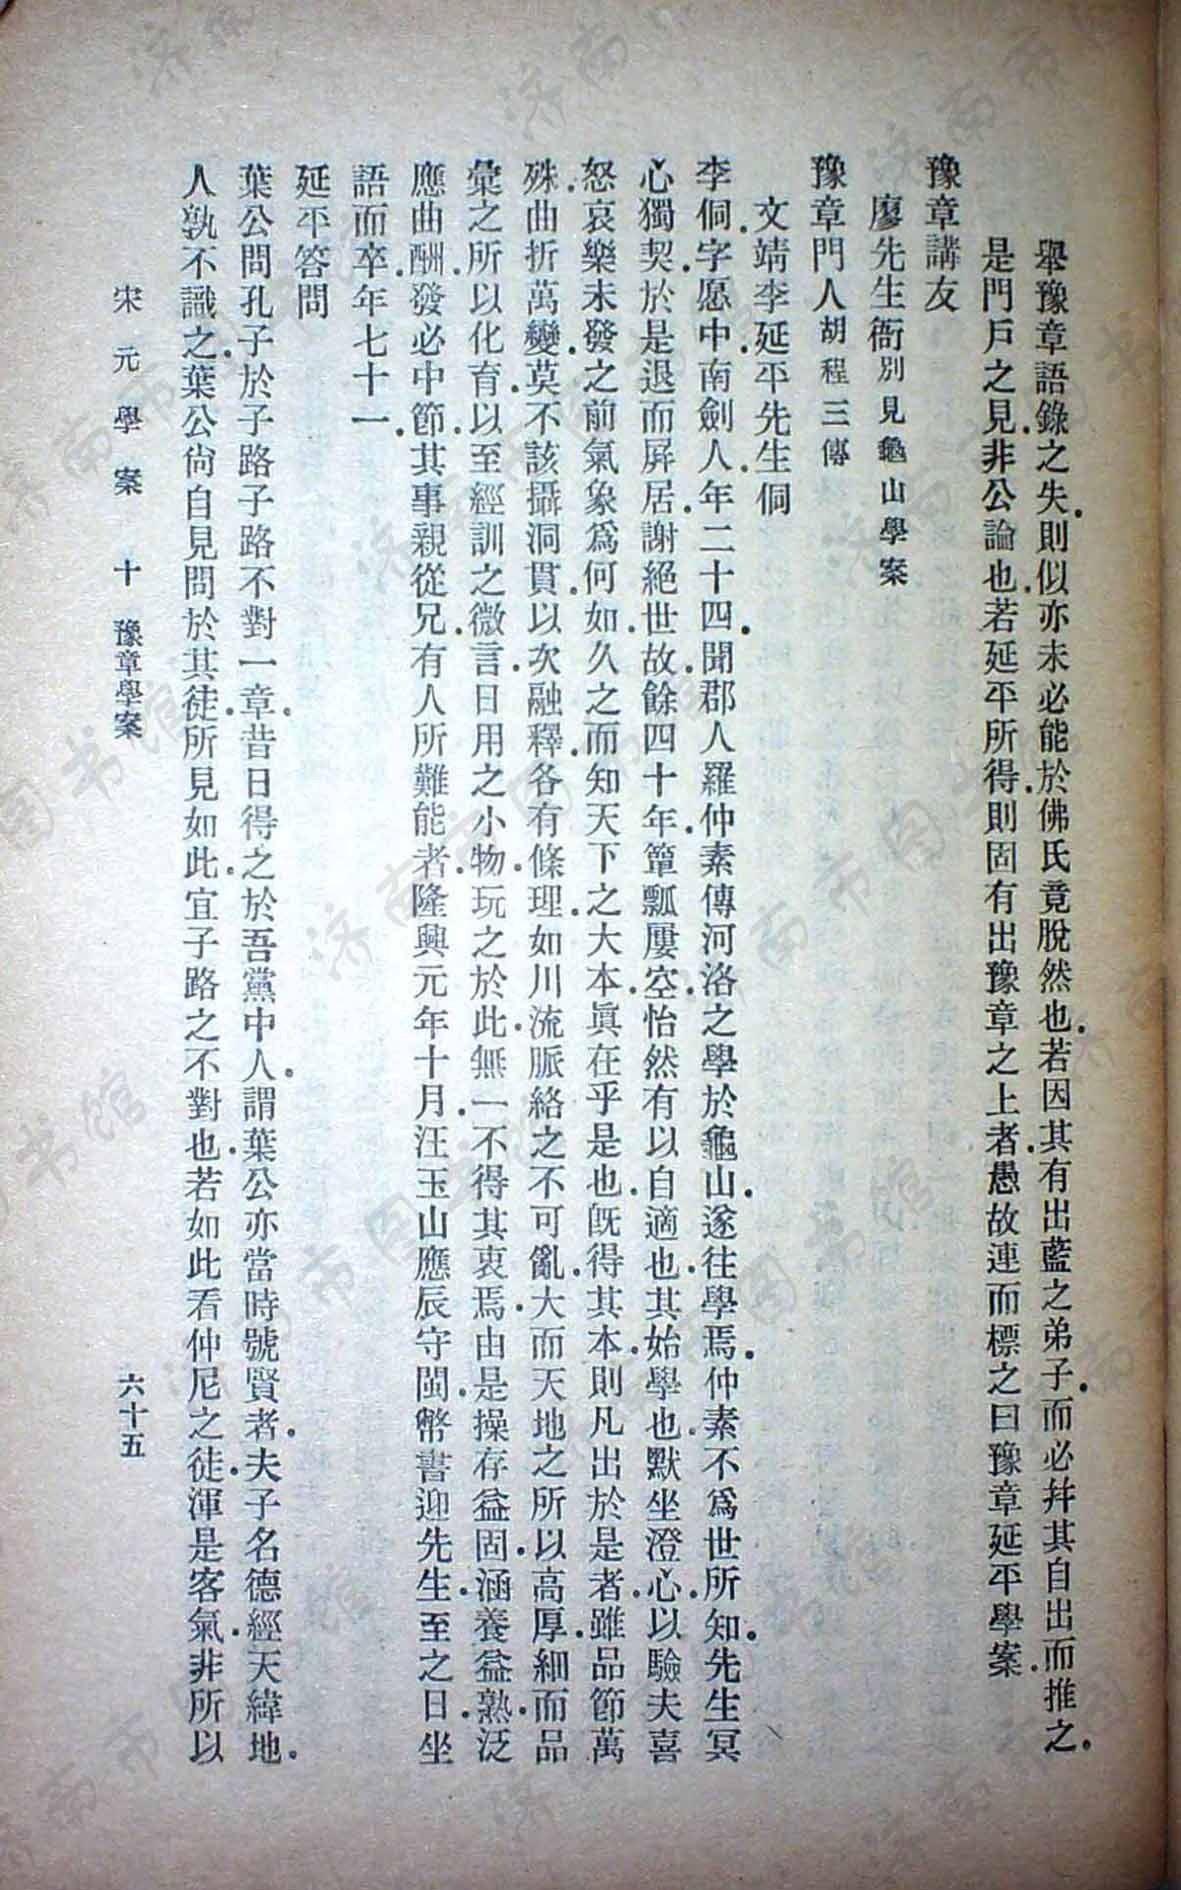 舉豫章語錄之失則似亦未必能於佛氏竟脫然也若因其有出藍之弟子而必幷其自出而推之
是門戶之見非公論也若延平所得則固有出豫章之上者愚故連而標之曰豫章延平學案
豫章講友
廖先生衙別見龜山學案
豫章門人胡程三傳
文靖李延平先生侗
李侗字愿中南劍人年二十四聞郡人羅仲素傳河洛之學於龜山遂往學焉仲素不爲世所知先生冥
心獨契於是退而屛居謝絕世故餘四十年簞瓢屢空怡然有以自適也其始學也默坐澄心以驗夫喜
怒哀樂未發之前氣象爲何如久之而知天下之大本眞在乎是也旣得其本則凡出於是者雖品節萬
殊曲折萬變莫不該攝洞貫以次融釋各有條理如川流脈絡之不可亂大而天地之所以高厚細而品
彙之所以化育以至經訓之微言日用之小物玩之於此無一不得其衷焉由是操存益固涵養益熟泛
應曲酬發必中節其事親從兄有人所難能者隆興元年十月汪玉山應辰守閩幣書迎先生至之日坐
語而卒年七十一
延平答問
葉公問孔子於子路子路不對一章昔日得之於吾黨中人謂葉公亦當時號賢者夫子名德經天緯地
人孰不識之葉公尙自見問於其徒所見如此宜子路之不對也若如此看仲尼之徒渾是客氣非所以
宋元學案 十 豫章學案 六十五
济南市图书馆